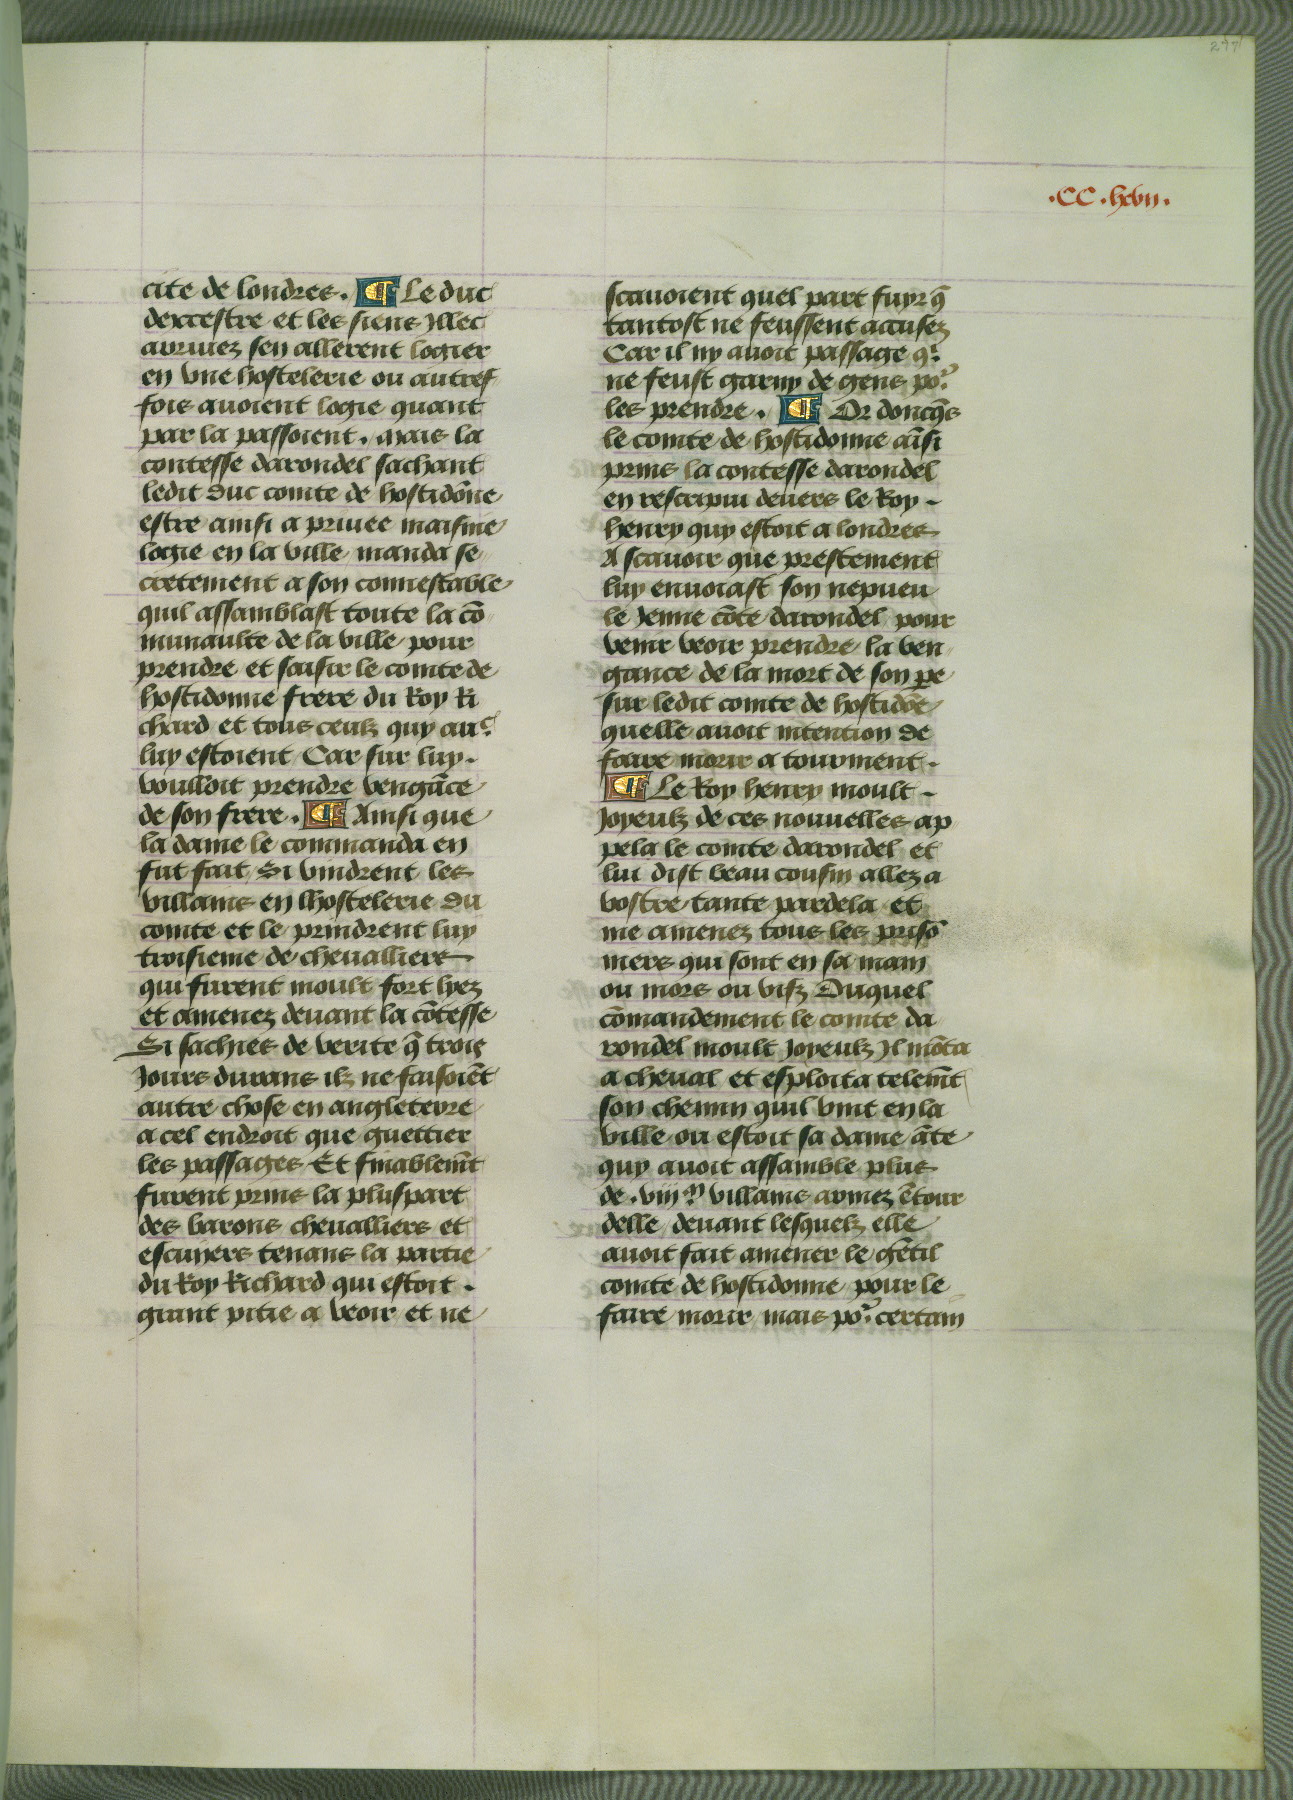 297
.CC.lxvii.
cite de londres. ¶ Le duc
dexcestre et les siens Illec
arriuez sen allerent logier
en vne hostelerie ou autres
fois auoient logie quant
par la passoient. mais la
contesse darondel sachant
ledit duc comte de hostidōne
estre ainsi a priuee maisme
logie en la ville manda se
cretement a son connestable
quil assamblast toute la cō
munaulte de la ville pour
prendre et saisir le comte de
hostidonne frere du Roy Ri
chard et tous ceulz quy auec
luy estoient Car sur luy.
voulloit prendre vengāce
de son frere. ¶ Ainsi que
la dame le commanda en
fut fait Si vindrent les
villains en lhostelerie du
comte et le prindrent luy
troisieme de chevalliers
qui furent moult fort lyez
et amenez deuant la cōtesse
Si sachies de verite q̄ trois
Jours durans ilz ne faisoiēt
autre chose en angleterre
a cel endroit que guettier
les passages Et finablem̄t
furent prins la pluspart
des barons chevalliers et
escuyers tenans la partie
du Roy Richard qui estoit.
grant pitie a veoir et ne
scauoient quel part fuyr q̄
tantost ne feussent accusez
Car il ny auoit passage q̄.
ne feust garny de gens po᷑
les prendre. ¶ Or doncq̄s
le comte de hostidonne aīsi
prins la contesse darondel
en rescripui deuers le Roy.
henry quy estoit a londres
A scauoir que prestement
luy enuoiast son nepueu
le Jenne cōte darondel pour
venir veoir prendre la ven
gance de la mort de son pe
sur ledit comte de hostidōe
quelle auoit intention de
faire morir a tourment.
¶ Le Roy henry moult.
Joyeulz de ces nouuelles ap
pela le comte darondel et
lui dist beau cousin allez a
vostre tante pardela et
me amenez tous les prisō
niers qui sont en sa main
ou mors ou vifz Duquel
cōmandement le comte da
rondel moult Joyeulz Jl mōta
a cheval et esploita telem̄t
son chemin quil vint en la
ville ou estoit sa dame āte
quy auoit assamble plus
de .viij.ᵐ villains armez ētour
delle deuant lesquelz elle
auoit fait amener le gētil
comte de hostidonne pour le
faire morir mais po᷑ certain